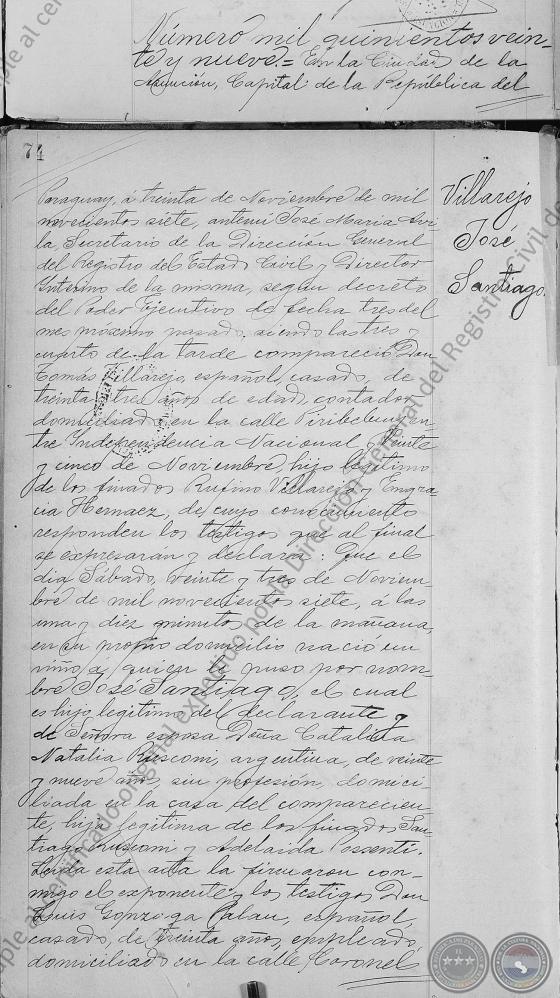 Número mil quinientos vein-
te y nueve = En la Ciudad de la
Asunción, Capital de la República del
74
Paraguay, á treinta de Noviembre de mil
novecientos siete, ante mi José Maria Avi-
la Secretario de la Dirección General
del Registro del Estado Civil y Director
Interino de la misma, según decreto
del Poder Ejecutivo de fecha tres del
mes próximo pasado, siendo las tres y
cuarto de la tarde compareció Don
Tomás Villarejo, español, casado, de
treinta y tres años de edad, contador
domiciliado en la calle Piribebuy en-
tre Independencia Nacional y Veinte
y cinco de Noviembre, hijo legítimo
de los finados Rufino Villarejo y Engra-
cia Hernaez, de cuyo conocimiento
responden los testigos que al final
se expresarán y declara: Que el
dia Sábado, veinte y tres de Noviem-
bre de mil novecientos siete, á las
una y diez minutos de la mañana,
en su propio domicilio nació un
niño a quien le puso por nom-
bre José Santiago, el cual
es hijo legítimo del declarante y
de Señora esposa Doña Catalina
Natalia Rusconi, argentina, de veinte
y nueve años, sin profesión, domici-
liada en la casa del comparecien-
te, hija legítima de los finados San-
tiago Rusconi y Adelaida Possenti.
Leida esta acta la firmaron con-
migo el exponente y los testigos Don
Luis Gonzaga Palau, español,
casado, de treinta años, empleado,
domiciliado en la calle Coronel
Villarejo
José
Santiago.